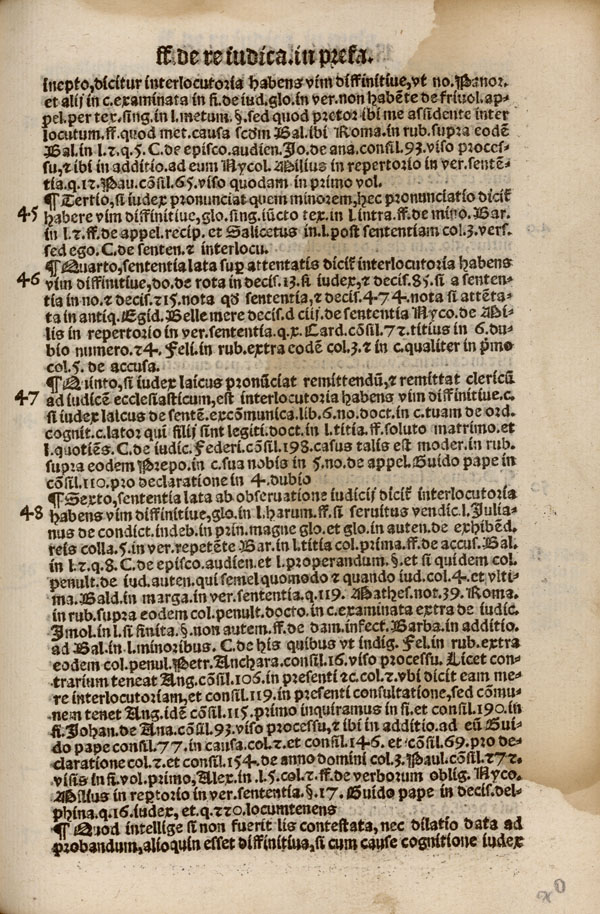 ff. de re iudica. in prefa.
inepto, dicitur interlocutoria habens vim diffinitiue, vt no. Panor.
et alij in c. examinata in fi. de iud. glo. in ver. non habēte de friuol. ap-
pel. per tex. sing. in l. metum. §. sed quod pretor ibi me assidente inter
locutum. ff. quod met. causa scd̄m Bal. ibi Roma. in rub. supra eodē
Bal. in l. ⁊. q. 5. C. de episco. audien. Jo. de ana. consil. 93. viso proces-
su, ⁊ ibi in additio. ad eum Nycol. Milius in repertorio in ver. sentē-
tia. q. 12. Pau. cōsil. 65. viso quodam in primo vol.
¶ Tertio, si iudex pronunciat quem minorem, hec pronunciatio dicit̄
45 habere vim diffinitiue, glo. sing. iūcto tex. in l. intra. ff. de mino. Bar.
in l. ⁊. ff. de appel. recip. et Salicetus in. l. post sententiam col. 3. vers.
sed ego. C. de senten. ⁊ interlocu.
¶ Quarto, sententia lata sup̄ attentatis dicit̄ interlocutoria habens
46 vim diffinitiue, do. de rota in decis. 13. si iudex, ⁊ decis. 85. si a senten-
tia in no. ⁊ decis. 215. nota qd̄ sententia, ⁊ decis. 474. nota si attēta-
ta in antiq. Egid. Belle mere decis. d ciij. de sententia Nyco. de Mi-
lis in repertorio in ver. sententia. q. x. Card. cōsil. 72. titius in 6. du-
bio numero. 24. Feli. in rub. extra codē col. 3. ⁊ in c. qualiter in p̄mo
col. 5. de accusa.
¶ Quinto, si iudex laicus pronūciat remittendū, ⁊ remittat clericū
47 ad iudicē ecclesiasticum, est interlocutoria habens vim diffinitiue. c.
si iudex laicus de sentē. excōmunica. lib. 6. no. doct. in c. tuam de ord.
cognit. c. lator qui filij sint legiti. doct. in l. titia. ff. soluto matrimo. et
l. quotiēs. C. de iudic. Federi. cōsil. 198. casus talis est moder. in rub.
supra eodem Prepo. in c. sua nobis in 5. no. de appel. Guido pape in
cōsil. 110. pro declaratione in 4. dubio
¶ Sexto, sententia lata ab obseruatione iudicij dicit̄ interlocutoria
48 habens vim diffinitiue, glo. in l. harum. ff. si seruitus vendic. l. Julia-
nus de condict. indeb. in prin. magne glo. et glo. in auten. de exhibēd.
reis colla. 5. in ver. repetēte Bar. in l. titia col. prima. ff. de accus. Bal.
in l. ⁊. q. 8. C. de episco. audien. et l. properandum. §. et si quidem col.
penult. de iud. auten. qui semel quomodo ⁊ quando iud. col. 4. et vlti-
ma. Bald. in marga. in ver. sententia. q. 119. Mathes. not. 39. Roma.
in rub. supra eodem col. penult. docto. in c. examinata extra de iudic.
Imol. in l. si finita. §. non autem. ff. de dam. infect. Barba. in additio.
ad Bal. in l. minoribus. C. de his quibus vt indig. Fel. in rub. extra
eodem col. penul. Petr. Anchara. consil. 16. viso processu. Licet con-
trarium teneat Ang. cōsil. 106. in presenti ⁊c. col. 2. vbi dicit eam me-
re interlocutoriam, et consil. 119. in presenti consultatione, sed cōmu-
nem tenet Ang. idē cōsil. 115. primo inquiramus in fi. et consil. 190. in
fi. Johan. de Ana. cōsil. 93. viso processu, ⁊ ibi in additio. ad eū Gui-
do pape consil. 77. in causa. col. 2. et consil. 146. et cōsil. 69. pro de-
claratione col. 2. et consil. 154. de anno domini col. 3. Paul. cōsil. 272.
visis in fi. vol. primo, Alex. in l. 5. col. 2. ff. de verborum oblig. Nyco.
Milius in rep̄torio in ver. sententia. §. 17. Guido pape in decis. del-
phina. q. 16. iudex, et. q. 220. locumtenens
¶ Quod intellige si non fuerit lis contestata, nec dilatio data ad
probandum, alioquin esset diffinitiua, si cum cause cognitione iudex